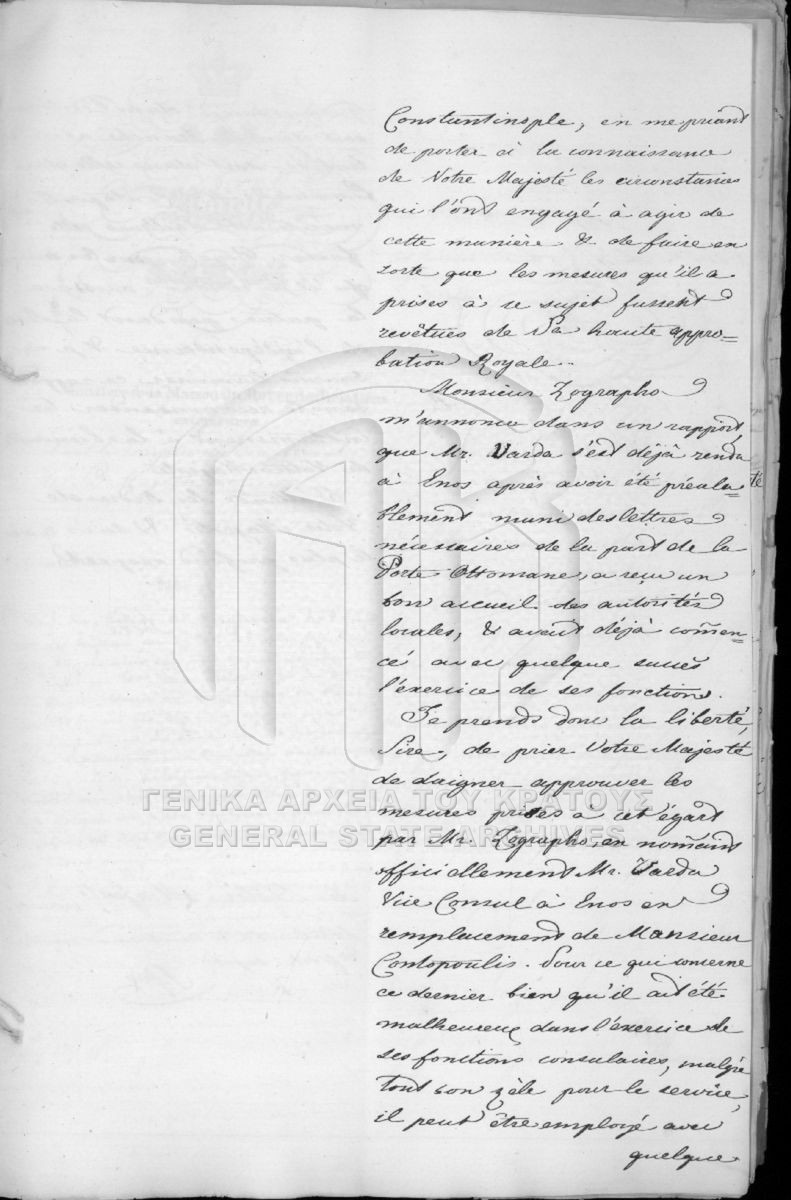 Constantinople, en me priant
de porter à la connaissance
de Votre Majesté les circonstances
qui l'ont engagé à agir de
cette manière & de faire en
sorte que les mesures qu'il a
prises à ce sujet fussent
revêtues de Sa haute appro=
bation Royale.
Monsieur Zographo
m'annonce dans un rapport,
que Mr. Varda s'est déjà rendu
à Enos après avoir été préala=
blement muni des lettres
nécessaires de la part de la
Porte Ottomane, a reçu un
bon accueil des autorités
locales, & avait déjà com̄en=
cé avec quelque succès
l'exercice de ses fonctions.
Je prends donc la liberté,
Sire, de prier Votre Majesté
de daigner approuver les
mesures prises à cet égard
par Mr. Zographo, en nom̄ant
officiellement Mr. Varda
Vice Consul à Enos en
remplacement de Monsieur
Contopoulis. Pour ce qui concerne
ce dernier bien qu'il ait été
malheureux dans l'exercice de
ses fonctions consulaires, malgré
tout son zèle pour le service,
il peut être employé avec
quelque
ΓΕΝΙΚΑ ΑΡΧΕΙΑ ΤΟΥ ΚΡΑΤΟΥΣ
GENERAL STATE ARCHIVES